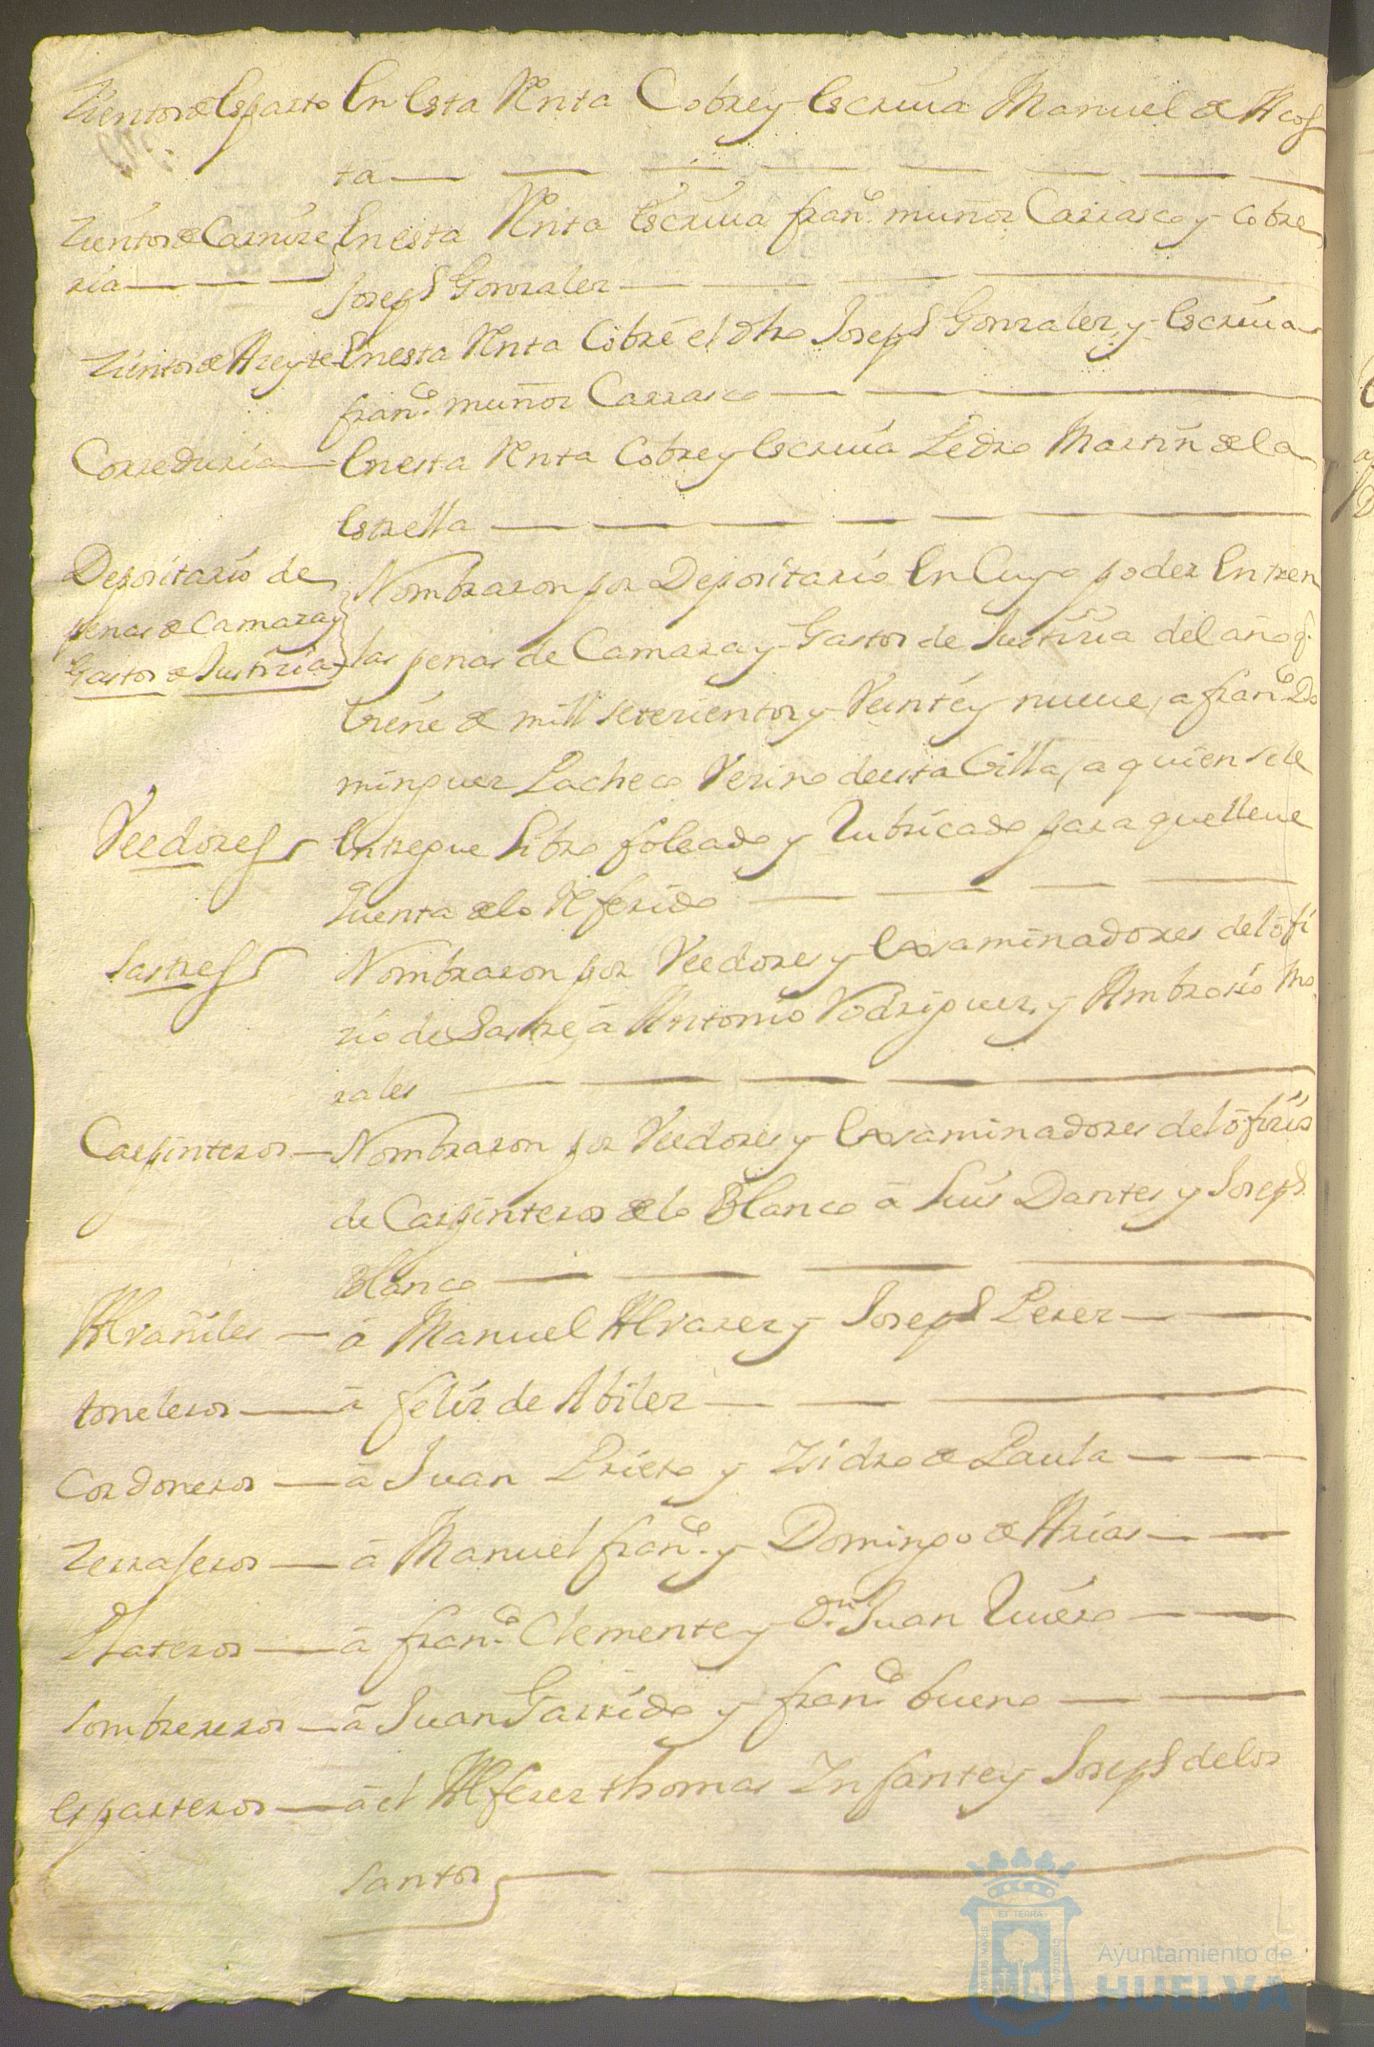 Zientos de Esparto En esta Renta Cobre y Escriua Manuel de Acos
ta
Zientos de Carnize En esta Renta Escriua fran.co muñoz Carrasco y Cobre
ria Joseph Gonzalez
Zientos de Azeyte En esta Renta Cobre el dho Joseph Gonzalez, y Escriua
fran.co muñoz Carrasco
Correduria En esta Renta Cobre y Escriua Pedro Martin de la
Estrella
Depositario de Nombraron por Depositario En Cuyo poder Entren
penas de Camara y las penas de Camara y Gastos de Justizia del año q.
Gastos de Justizia
biene de mill setezientos y Veinte y nueue, a fran.co Do
minguez Pacheco Vezino de esta Villa, a quien se le
Veedores Entregue Libro foleado y Rubricado para que lleue
quenta de lo Referido
Sastres Nombraron por Veedores y Exsaminadores del ofi
zio de Sastre, â Antonio Rodriguez, y Ambrosio Mo
rales
Carpinteros Nombraron por Veedores y Exsaminadores del ofizio
de Carpinteros de lo Blanco â Luis Dantes y Joseph
Blanco
Alvañiles â Manuel Alvarez y Joseph Perez
toneleros â felix de Abiler
Cordoneros â Juan Prieto y Isidro de Paula
Zerrajeros â Manuel fran.co y Domingo de Arias
Plateros â fran.co Clemente y D.n Juan Quiero
Sombrereros â Juan Garrido y fran.co bueno
esparteros â el Alferez thomas Infante y Joseph de los
Santos
Ayuntamiento de
HUELVA